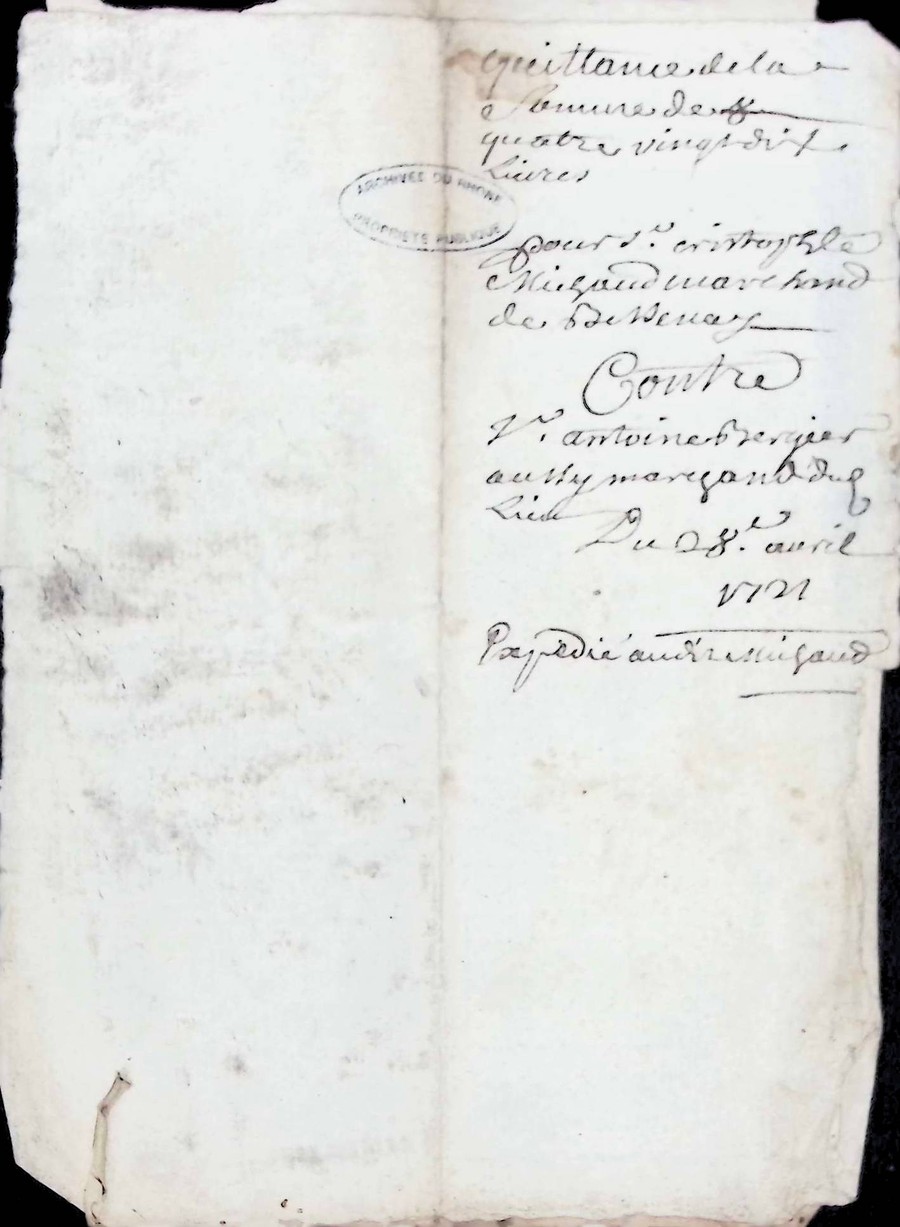 quittance de la
Somme de
quatre vingt dix
Livres
ARCHIVES DU RHONE
PROPRIETE PUBLIQUE
pour sr. cristophle
Michaud marchand
de Bessenay
Contre
Sr. antoine Bergier
aussy marchand dud
Lieu
Du 28.e avril
1721
Expedié audit Michaud